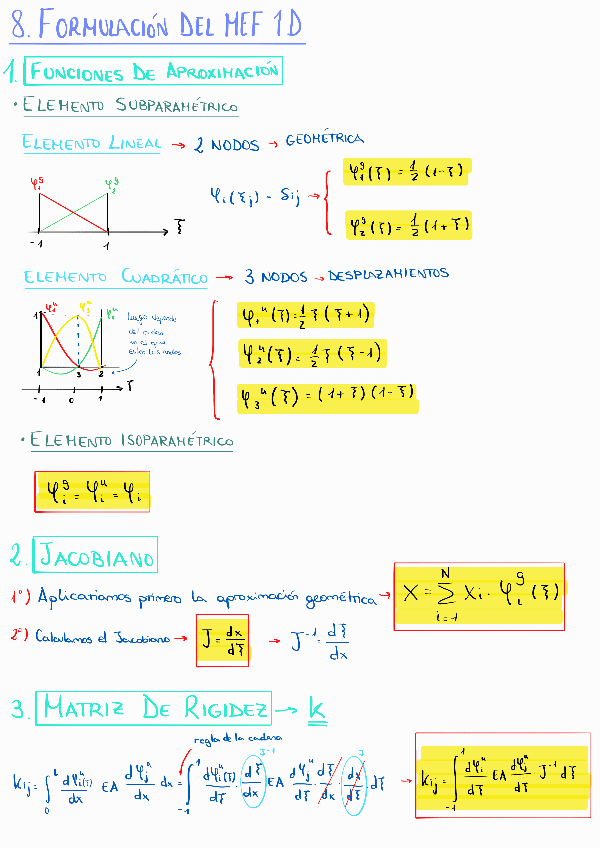 8. FORMULACIÓN DEL MEF 1D
1. FUNCIONES DE APROXIMACIÓN
• ELEMENTO SUBPARAMÉTRICO
ELEMENTO LINEAL → 2 NODOS → GEOMÉTRICA
φ₁ᵍ φ₂ᵍ
-1 1 ξ
φᵢ(ξⱼ) = δij →
φ₁ᵍ(ξ) = 1/2 (1-ξ)
φ₂ᵍ(ξ) = 1/2 (1+ξ)
ELEMENTO CUADRÁTICO → 3 NODOS → DESPLAZAMIENTOS
1 φ₁ᵘ φ₃ᵘ φ₂ᵘ
1 3 2
-1 0 1 ξ
φ₁ᵘ(ξ) = 1/2 ξ (ξ+1)
φ₂ᵘ(ξ) = 1/2 ξ (ξ-1)
φ₃ᵘ(ξ) = (1+ξ)(1-ξ)
• ELEMENTO ISOPARAMÉTRICO
φᵢᵍ = φᵢᵘ = φᵢ
2. JACOBIANO
1º) Aplicaríamos primero la aproximación geométrica → X = Σ_{i=1}^{N} Xi · φᵢᵍ(ξ)
2º) Calculamos el Jacobiano → J = dx/dξ → J⁻¹ = dξ/dx
3. MATRIZ DE RIGIDEZ → k
regla de la cadena
kij = ∫₀ᴸ dφᵢᵘ(ξ)/dx EA dφⱼᵘ/dx dx = ∫₋₁¹ dφᵢᵘ(ξ)/dξ · dξ/dx EA dφⱼᵘ/dξ · dξ/dx · dx/dξ · dξ → kij = ∫₋₁¹ dφᵢᵘ/dξ EA dφⱼᵘ/dξ J⁻¹ dξ
J⁻¹ J